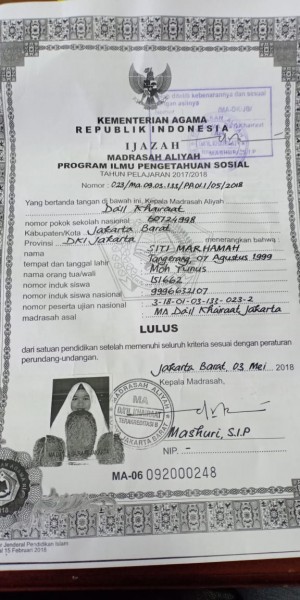 KEMENTERIAN AGAMA
REPUBLIK INDONESIA
IJAZAH
MADRASAH ALIYAH
PROGRAM ILMU PENGETAHUAN SOSIAL
TAHUN PELAJARAN 2017/2018
Nomor : 023/MA.09.03.133/PP.01.1/05/2018
Yang bertanda tangan di bawah ini, Kepala Madrasah Aliyah
Da'il Khairaat
nomor pokok sekolah nasional 60724998
Kabupaten/Kota Jakarta Barat
Provinsi DKI Jakarta menerangkan bahwa :
nama SITI MARHAMAH
tempat dan tanggal lahir Tangerang, 07 Agustus 1999
nama orang tua/wali Moh Yunus
nomor induk siswa 151662
nomor induk siswa nasional 9996632107
nomor peserta ujian nasional 3-18-01-03-133-023-2
madrasah asal MA Da'il Khairaat Jakarta
LULUS
dari satuan pendidikan setelah memenuhi seluruh kriteria sesuai dengan peraturan
perundang-undangan.
Jakarta Barat, 03 Mei 2018
Kepala Madrasah,
MADRASAH ALIYAH
MA
DA'IL KHAIRAAT
JAKARTA BARAT
Mashuri, S.I.P
NIP. -
MA-06 092000248
Jenderal Pendidikan Islam
15 Februari 2018